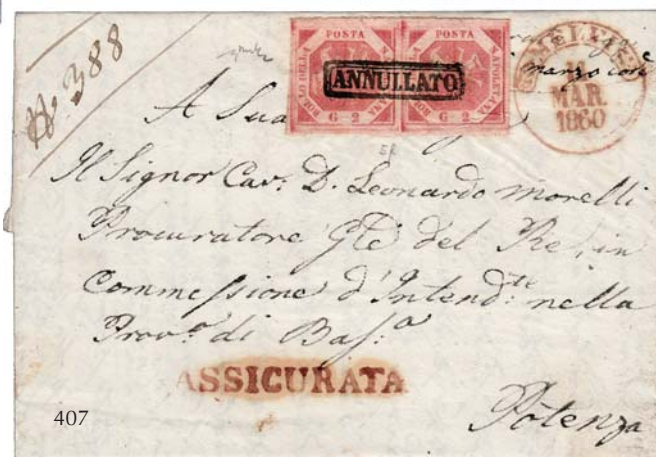 N. 388
POSTA POSTA
BOLLO DELLA NAPOLETANA BOLLO DELLA NAPOLETANA
G 2 G 2
ANNULLATO
marzo
MAR.
1860
A Sua
Il Signor Cav. D. Leonardo Morelli
Procuratore Gle del Re, in
Commessione d'Intendte nella
Prova di Basa
ASSICURATA
Potenza
407